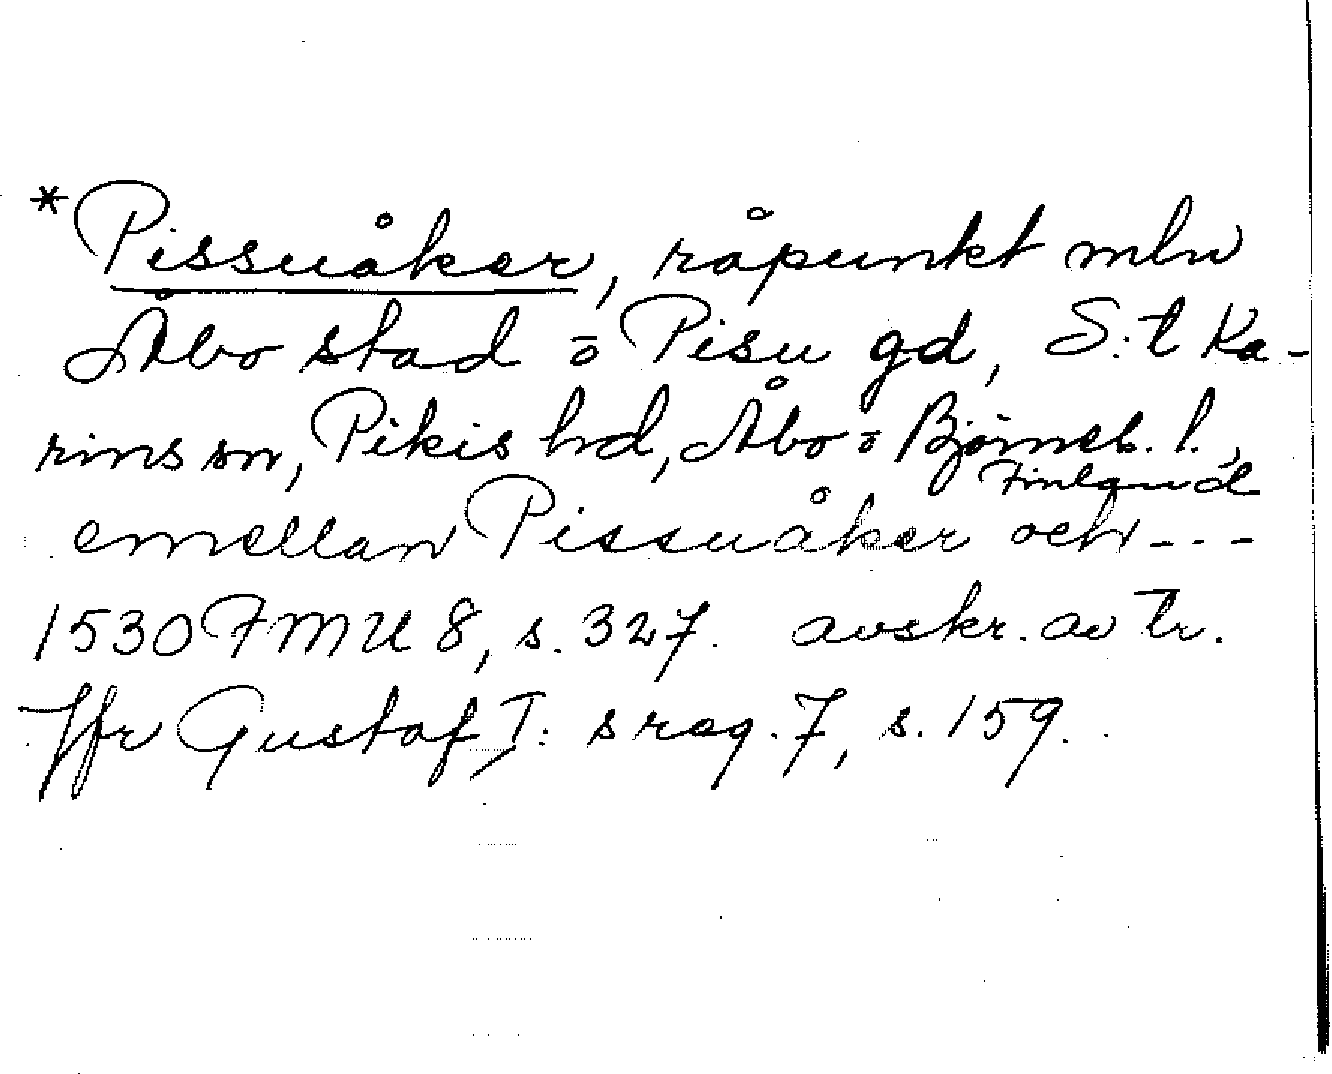 *Pissuåker, råpunkt mln
Åbo stad o Pisu gd, S:t Ka-
rins sn, Pikis hd, Åbo o Björneb. l.,
Finland
emellan Pissuåker och ---
1530 FMU 8, s. 327. avskr. av tr.
Jfr Gustaf I:s reg. 7, s. 159.